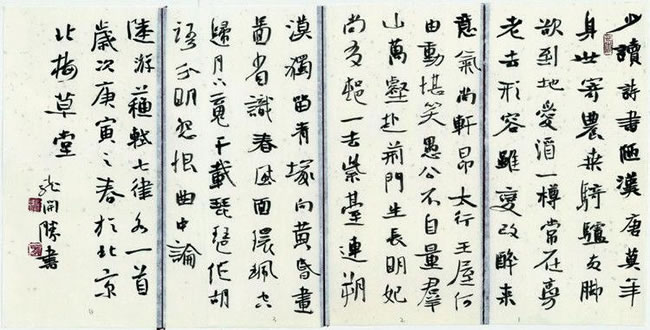 少讀詩書陋漢唐莫年
身世寄農桑騎驢脚
欲到地愛酒一樽常在旁
老去形容雖變改醉来
意氣尚軒昂太行王屋何
由動堪笑愚公不自量羣
山萬壑赴荊門生長明妃
尚有邨一去紫臺連朔
漠獨留青塚向黄昏畫
圖省識春風面環珮空
歸月千載琵琶作胡
語分明怨恨曲中論
陸游蘇軾七律各一首
歲次庚寅之春於北京
北梅草堂
書